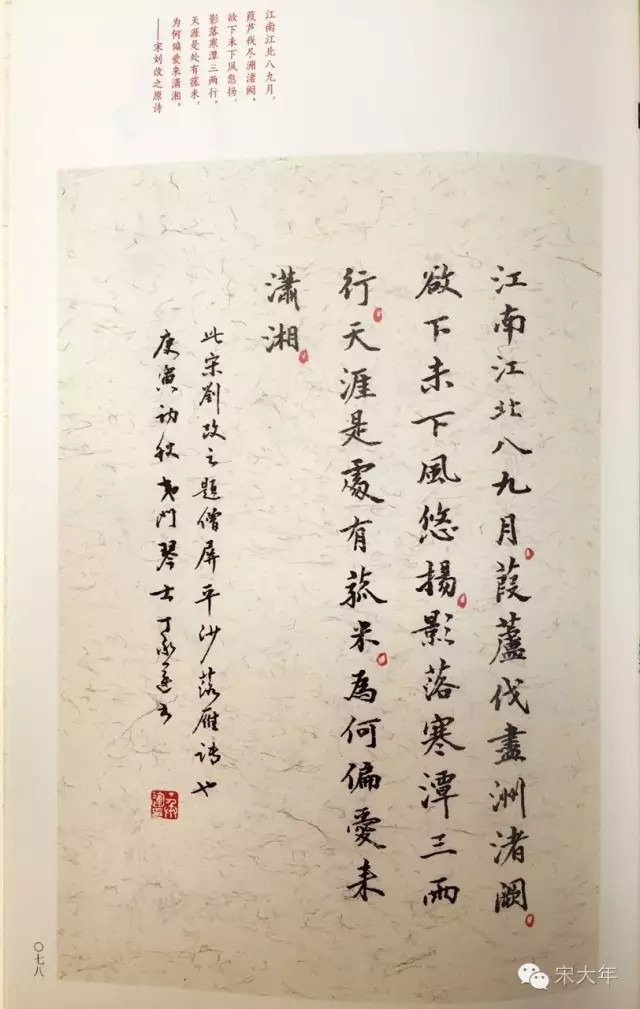 江南江北八九月，
葭芦伐尽洲渚阙。
欲下未下风悠扬，
影落寒潭三两行。
天涯是处有菰米，
为何偏爱来潇湘。
——宋刘改之原诗
江南江北八九月葭蘆伐盡洲渚闕
欲下未下風悠揚影落寒潭三兩
行天涯是處有菰米為何偏愛来
瀟湘
此宋劉改之題僧屏平沙落雁诗也
庚寅初秋夷門琴士丁承運书
〇七八
宋大年